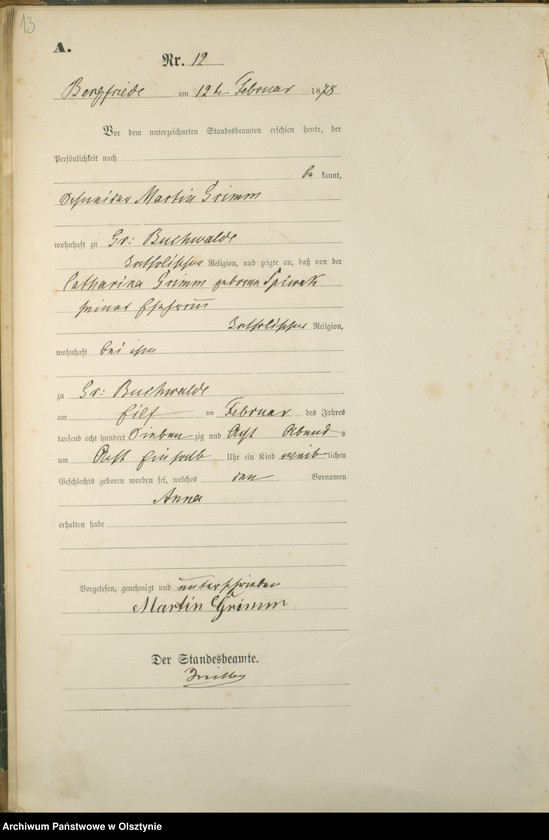 13
A.
Nr. 12
Bergfriede am 12ten Februar 1878
Vor dem unterzeichneten Standesbeamten erschien heute, der
Persönlichkeit nach
be kannt,
Schneider Martin Grimm
wohnhaft zu Gr: Buchwalde
katholischer Religion, und zeigte an, daß von der
Catharina Grimm geborne Spiwek
seiner Ehefrau
katholischer Religion,
wohnhaft bei ihm
zu Gr: Buchwalde
am Eilf ten Februar des Jahres
tausend acht hundert Sieben zig und Acht Abend s
um Acht Einhalb Uhr ein Kind weib lichen
Geschlechts geboren worden sei, welches den Vornamen
Anna
erhalten habe
Vorgelesen, genehmigt und unterschrieben
Martin Grimm
Der Standesbeamte.
Archiwum Państwowe w Olsztynie